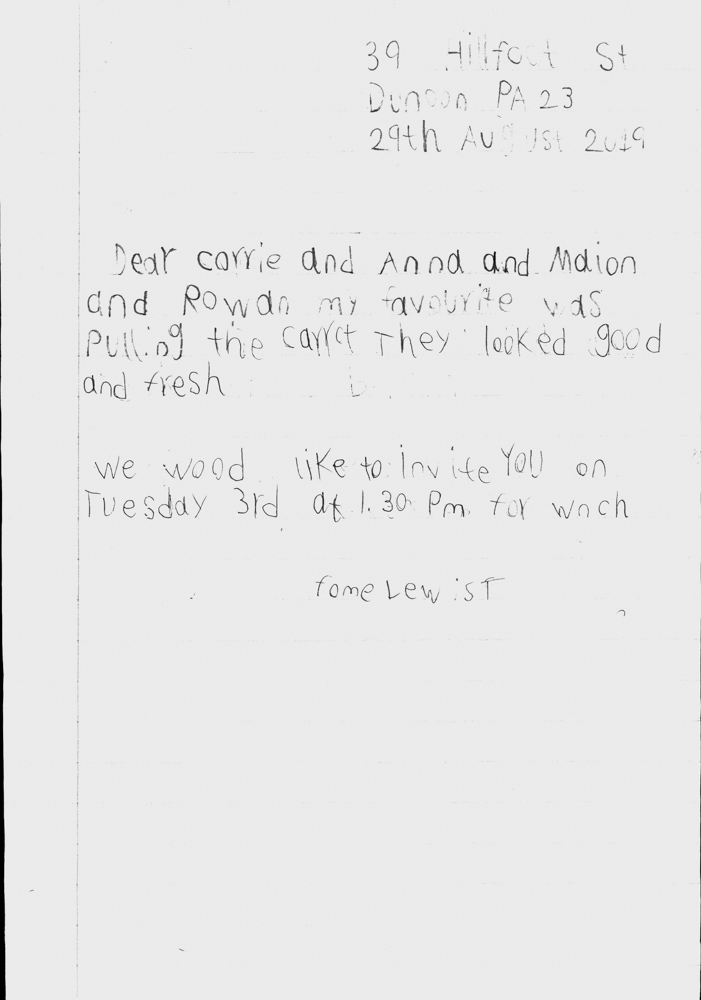 39 Hillfoot St
Dunoon PA 23
29th August 2019
Dear carrie and Anna and Maion
and Rowan my favourite was
Pulling the carrot They looked good
and fresh
we wood like to invite You on
Tuesday 3rd at 1.30 Pm for wnch
fome Lewis T